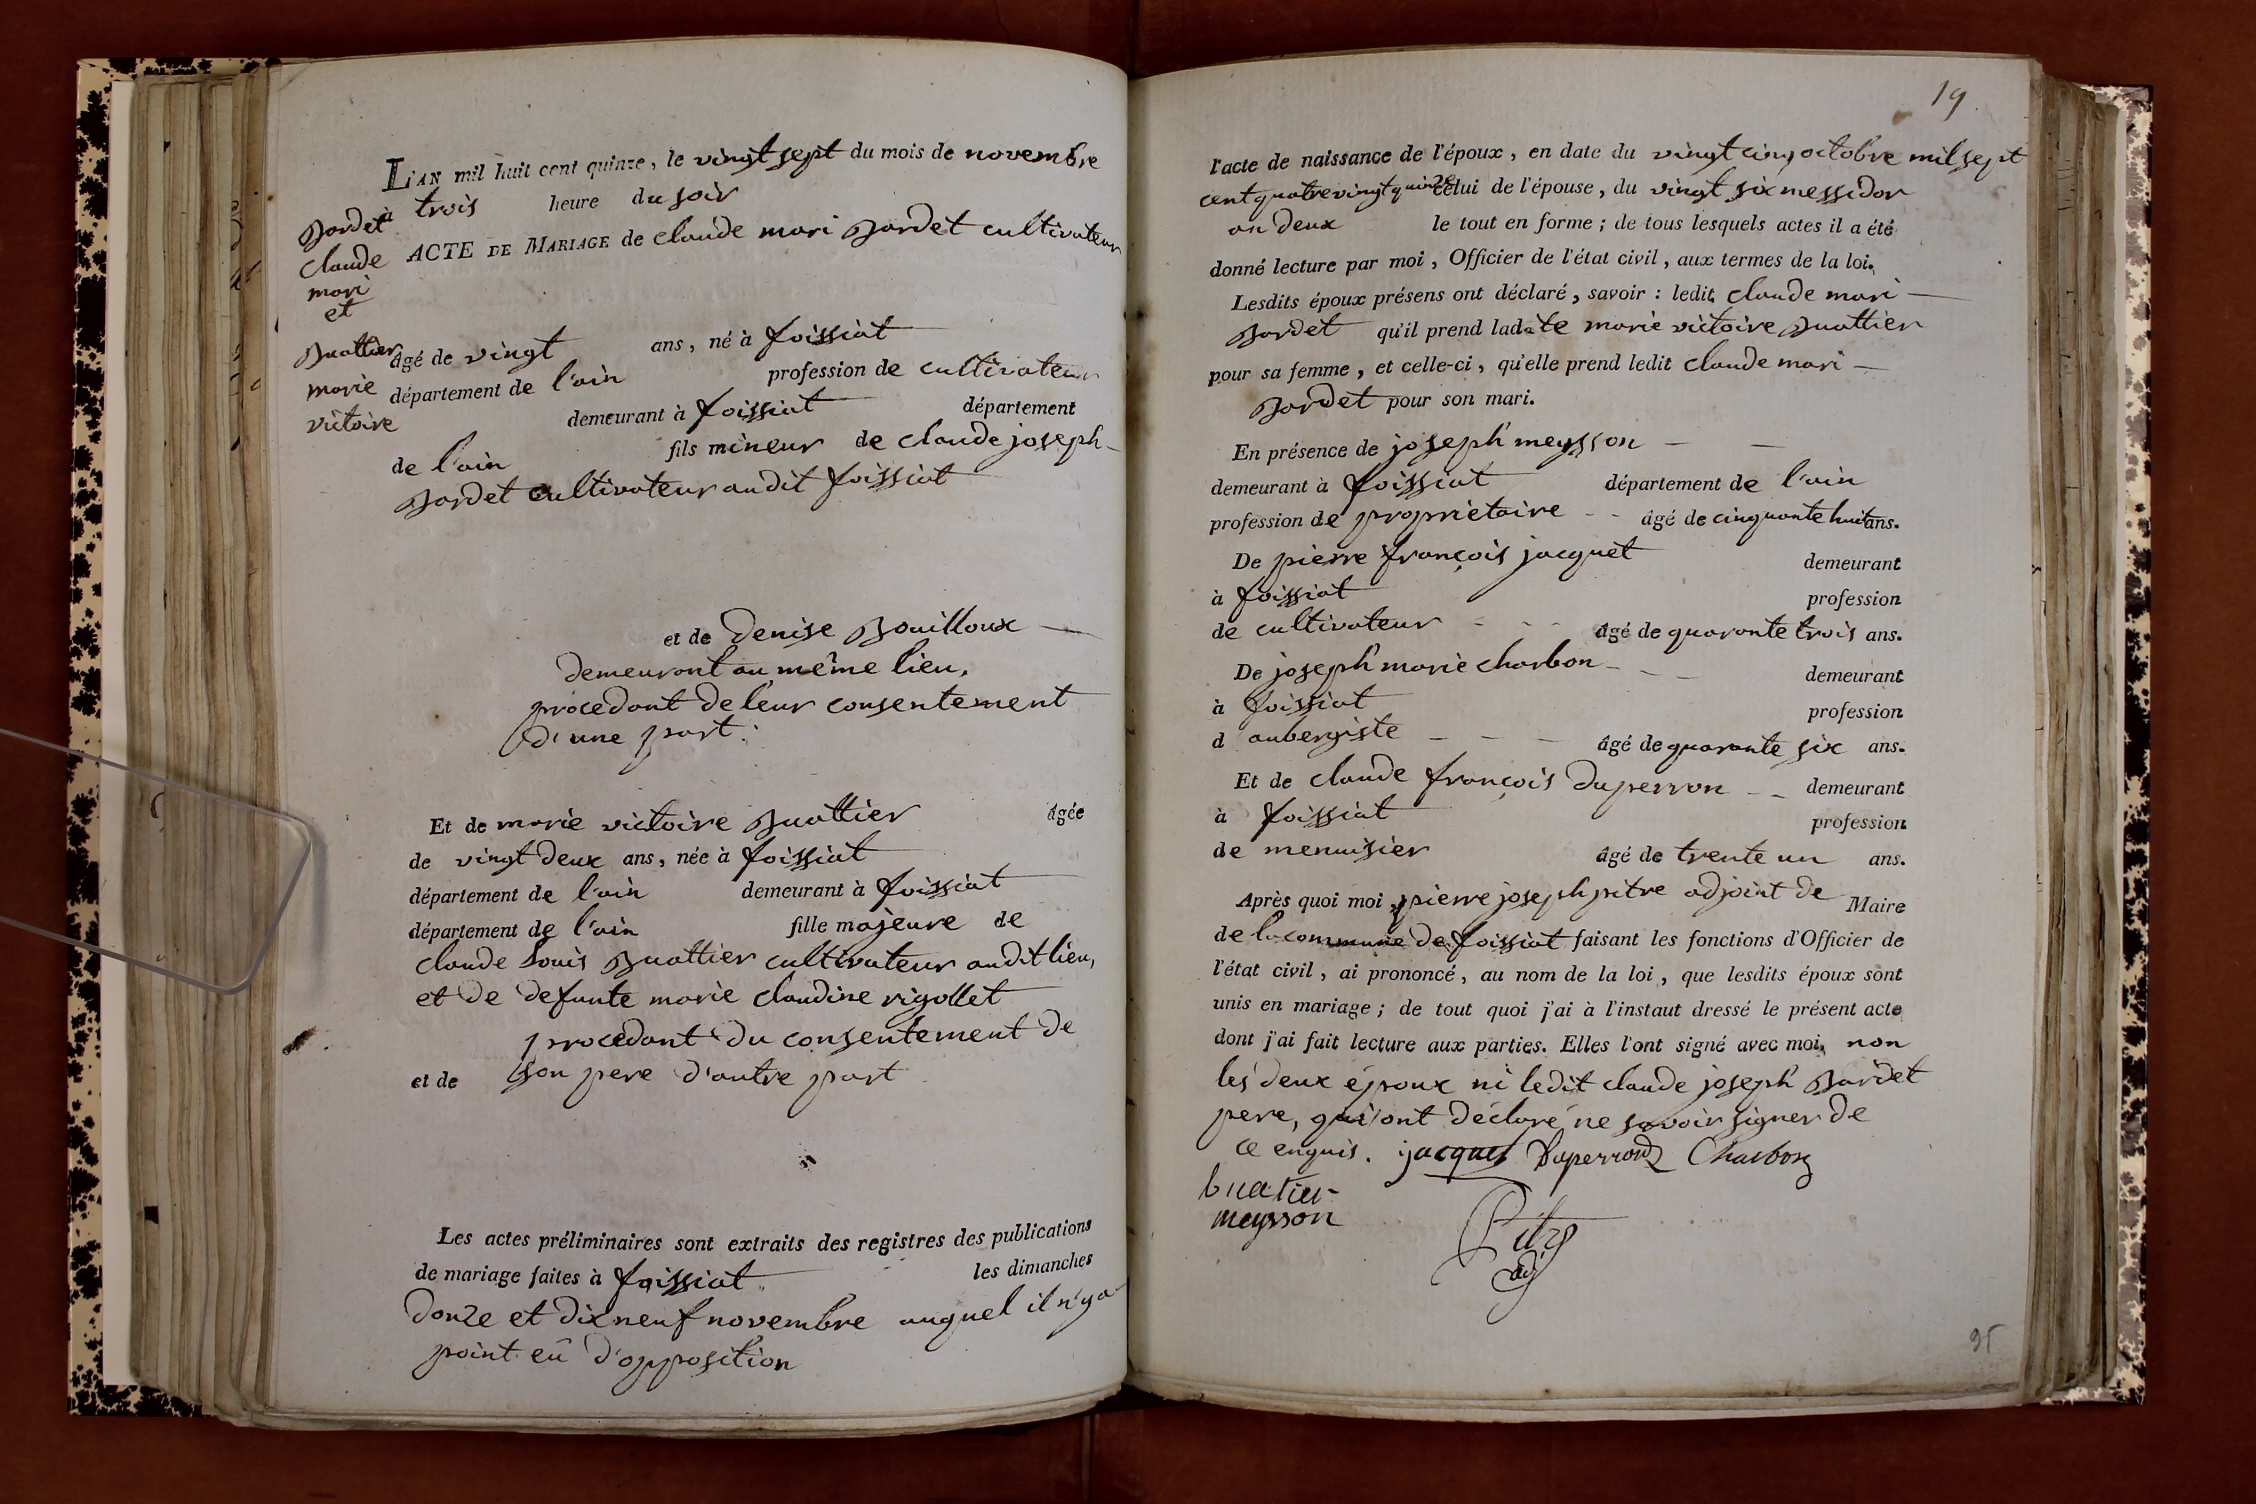 L'AN mil huit cent quinze, le vingt sept du mois de novembre
à trois heure du soir
ACTE DE MARIAGE de claude mari Bordet cultivateur
Bordet
claude
mari
et
Buattier
marie
victoire
âgé de vingt ans, né à foissiat
département de l'ain profession de cultivateur
demeurant à foissiat département
de l'ain fils mineur de claude joseph
Bordet cultivateur audit foissiat
et de denise Bouilloux
demeurant au même lieu,
procedant de leur consentement
d'une part.
Et de marie victoire Buattier âgée
de vingt deux ans, née à foissiat
département de l'ain demeurant à foissiat
département de l'ain fille majeure de
claude Louis Buattier cultivateur audit lieu,
et de defunte marie claudine rigollet
procedant du consentement de
et de son pere d'autre part
Les actes préliminaires sont extraits des registres des publications
de mariage faites à foissiat les dimanches
douze et dix neuf novembre auquel il n'y a
point eû d'opposition
19
l'acte de naissance de l'époux, en date du vingt cinq octobre mil sept
cent quatre vingt quinze celui de l'épouse, du vingt six messidor
an deux le tout en forme; de tous lesquels actes il a été
donné lecture par moi, Officier de l'état civil, aux termes de la loi.
Lesdits époux présens ont déclaré, savoir: ledit claude mari
Bordet qu'il prend ladite marie victoire Buattier
pour sa femme, et celle-ci, qu'elle prend ledit claude mari
Bordet pour son mari.
En présence de joseph meysson
demeurant à foissiat département de l'ain
profession de proprietaire âgé de cinquante huit ans.
De pierre françois jacquet demeurant
à foissiat profession
de cultivateur âgé de quarante trois ans.
De joseph marie charbon demeurant
à foissiat profession
d aubergiste âgé de quarante six ans.
Et de claude françois duperron demeurant
à foissiat profession
de menuisier âgé de trente un ans.
Après quoi moi pierre joseph pitre adjoint de Maire
de la commune de foissiat faisant les fonctions d'Officier de
l'état civil, ai prononcé, au nom de la loi, que lesdits époux sont
unis en mariage; de tout quoi j'ai à l'instaut dressé le présent acte
dont j'ai fait lecture aux parties. Elles l'ont signé avec moi, non
les deux époux ni ledit claude joseph Bordet
pere, qui ont déclaré ne savoir signer de
ce enquis. jacquet Duperron Charbon
buatier
meysson
Pitre
adj
95